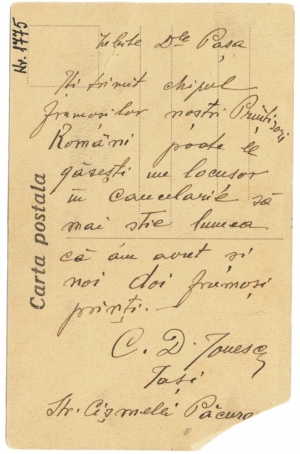 Nr. 1775
Carta postala
Iubite Dle Pașa
Iți trimit chipul
frumoșilor noștri Prințișori
Români poate le
găsești un locușor
in cancelarie să
mai știe lumea
că am avut și
noi doi frumoși
prinți. —
C. D. Ionescu
Iași
Str. Cișmelei Păcurari